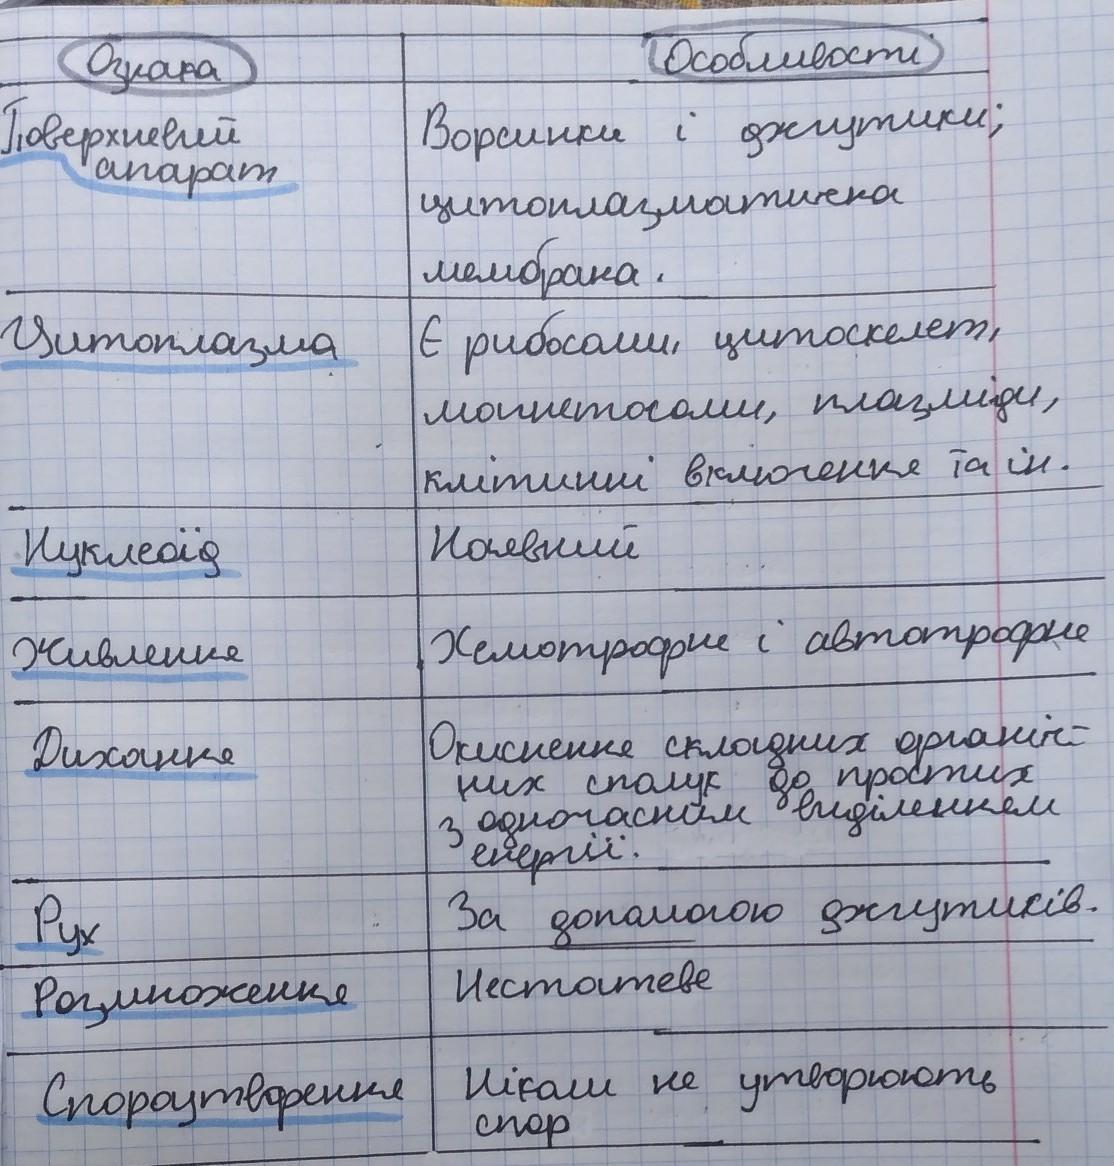 Ознака
Особливості
Поверхневий
апарат
Ворсинки і джгутики;
цитоплазматична
мембрана.
Цитоплазма
Є рибосоми, цитоскелет,
магнетосоми, плазміди,
клітинні включення та ін.
Нуклеоїд
Наявний
Живлення
Хемотрофне і автотрофне
Дихання
Окиснення складних органіч-
них сполук до простих
з одночасним виділенням
енергії.
Рух
За допомогою джгутиків.
Розмноження
Нестатеве
Спороутворення
Ніколи не утворюють
спор